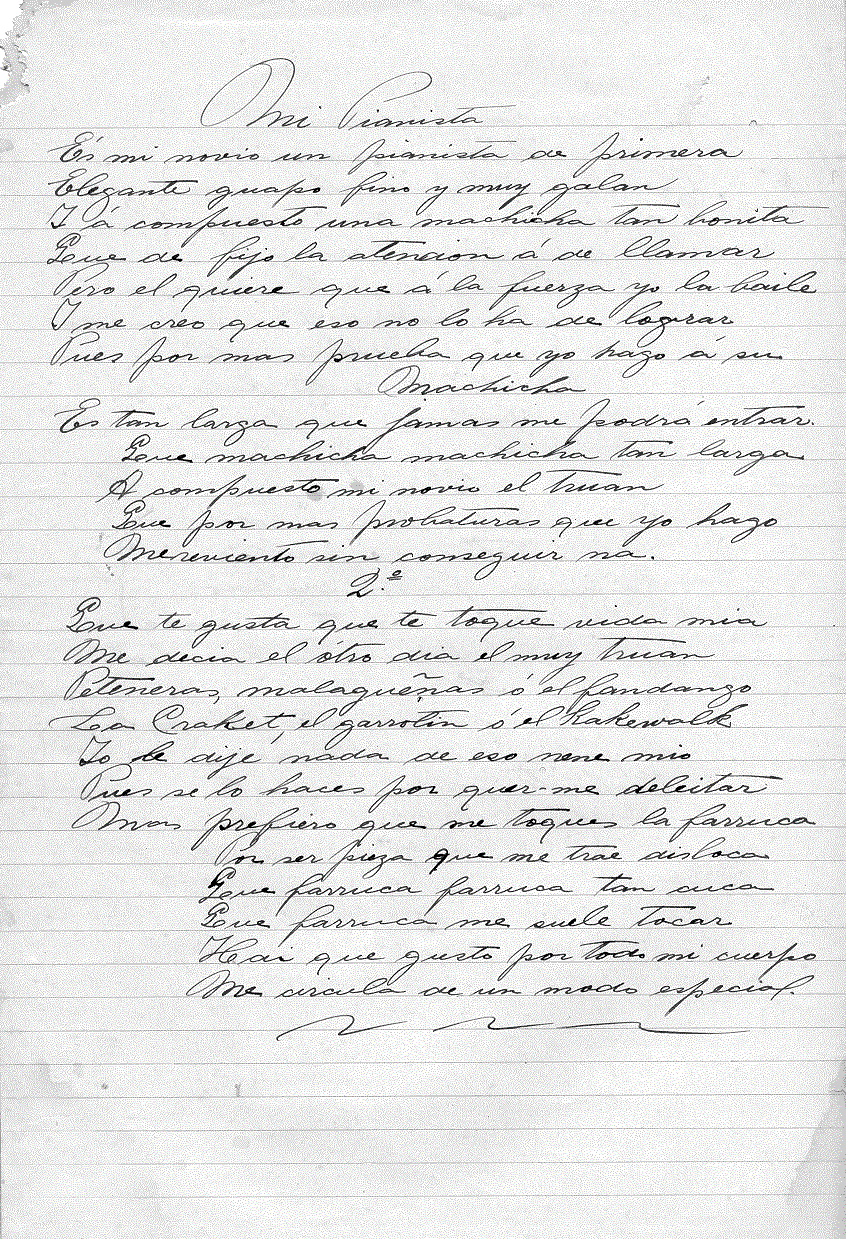 Mi Pianista
Es mi novio un pianista de primera
Elegante guapo fino y muy galan
Y á compuesto una machicha tan bonita
Que de fijo la atencion á de llamar
Pero el quiere que á la fuerza yo la baile
Y me creo que eso no lo ha de lograr
Pues por mas prueba que yo hago á su
Machicha
Es tan larga que jamas me podrá entrar.
Que machicha machicha tan larga
A compuesto mi novio el truan
Que por mas probaturas que yo hago
Me reviento sin conseguir na.
2.º
Que te gusta que te toque vida mia
Me decia el ótro dia el muy truan
Peteneras, malagueñas ó el fandango
La Craket, el garrotin ó el kakewalk
Yo le dije nada de eso nene mio
Pues se lo haces por quer-me deleitar
Mas prefiero que me toques la farruca
Por ser pieza que me trae disloca
Que farruca farruca tan cuca
Que farruca me suele tocar
Hai que gusto por todo mi cuerpo
Me circula de un modo especial.